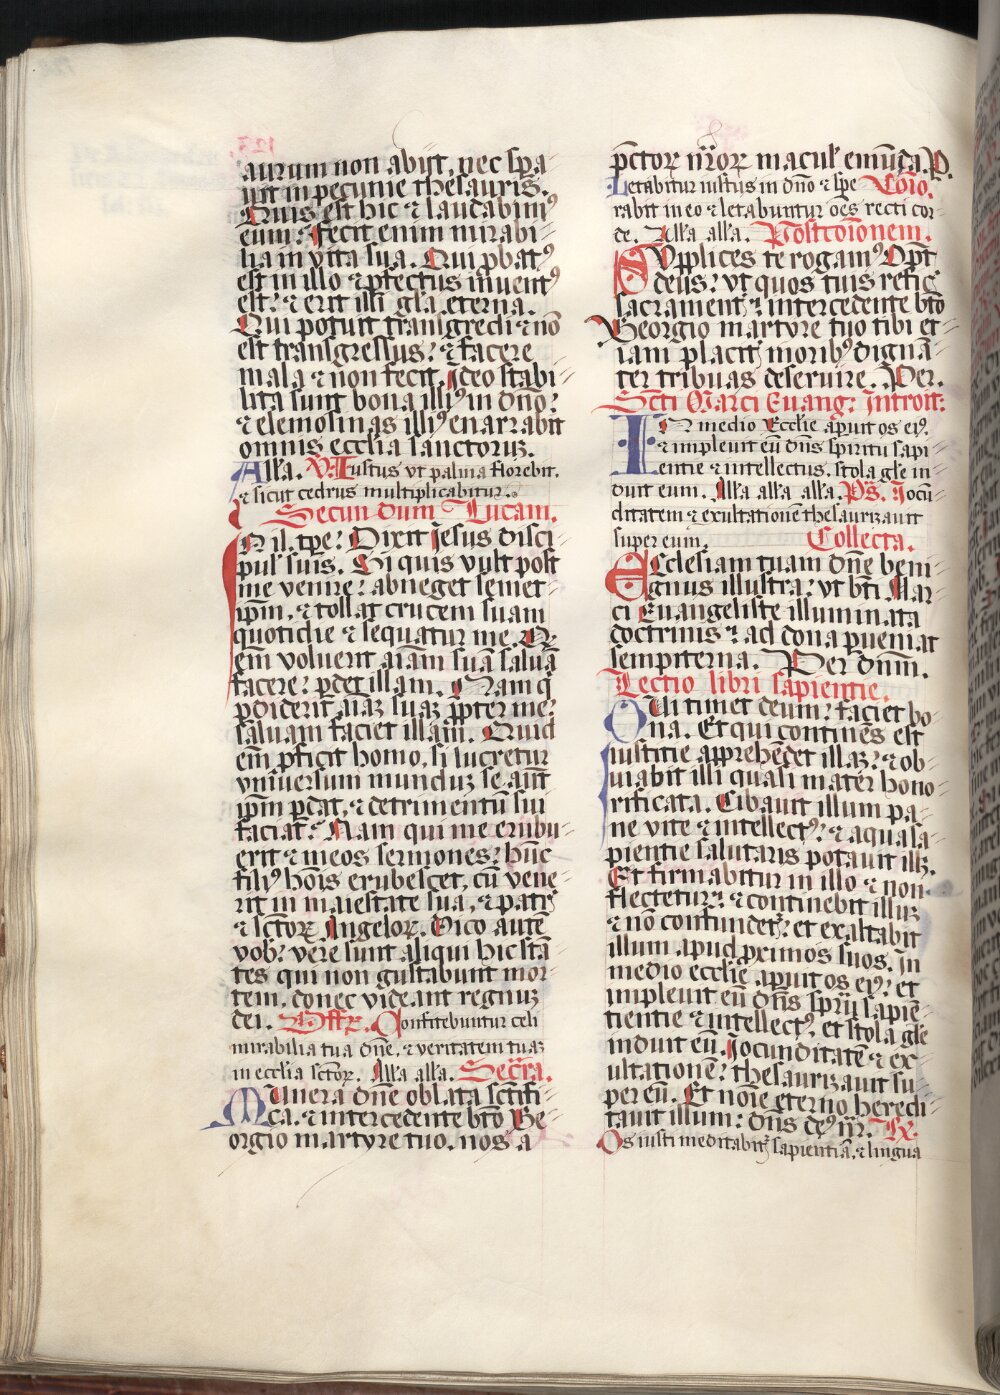 aurum non abijt, nec spa
uit in pecunie thesauris.
Quis est hic ⁊ laudabimꝰ
eum: fecit enim mirabi
lia in vita sua. Qui ꝓbatꝰ
est in illo ⁊ ꝑfectus inuentꝰ
est: ⁊ erit illi gl̄a eterna.
Qui potuit transgredi ⁊ nō
est transgressus: ⁊ facere
mala ⁊ non fecit. Ideo stabi
lita sunt bona illiꝰ in dn̄o:
⁊ elemosinas illiꝰ enarrabit
omnis ecclīa sanctoruꝫ.
Alła. ℣. Iustus vt palma florebit.
⁊ sicut cedrus multiplicabitur.
Secundum Lucam.
In il. tꝑe: Dixit Jesus disci
pulꝭ suis. Si quis vult post
me venire: abneget semet
ip̄m. ⁊ tollat crucem suam
quotidie ⁊ sequatur me. Qui
em̄ voluerit aīam suā saluā
facere: ꝑdet illam. Nam q̇
ꝑdiderit aīaꝫ suaꝫ ꝓpter me:
saluam faciet illam. Quid
em̄ ꝓficit homo, si lucretur
vniuersum munduꝫ se aūt
ip̄m ꝑdat, ⁊ detrimentū sui
faciat: Nam qui me erubu
erit ⁊ meos sermones: hūc
filiꝰ hoīs erubescet, cū vene
rit in maiestate sua, ⁊ patrꝭ
⁊ sctōꝝ Angeloꝝ. Dico autē
vobꝭ vere sunt aliqui hic stā
tes qui non gustabunt mor
tem, donec videant regnuꝫ
dei. Offꝝ. Confitebuntur celi
mirabilia tua dn̄e, ⁊ veritatem tuaꝫ
in ecclīa sctōꝝ. Alła alła. Secr̄a.
Munera dn̄e oblata sctīfi
ca. ⁊ intercedente btō Ge
orgio martyre tuo, nos a
pc̄toꝝ nr̄oꝝ maculꝭ emūda. P.
Letabitur iustus in dn̄o ⁊ spe Cōīo.
rabit in eo ⁊ letabuntur oēs recti cor
de. Alła alła. Postcōionem.
Supplices te rogamꝰ Op̄t
deus: vt quos tuis reficꝭ
sacramentꝭ ⁊ intercedente btō
Georgio martyre tuo tibi et
iam placitꝭ moribꝰ dignā
ter tribuas deseruire. Per.
Scti Marci Euang: Introit:
In medio Ecclīe aperuit os eiꝰ.
⁊ impleuit eū dn̄s spiritu sapi
entie ⁊ intellectus. stola gl̄e in
duit eum. Alła alła alła. Ps. Jocū
ditatem ⁊ exultationē thesaurizauit
super eum. Collecta.
Ecclesiam tuam dn̄e beni
gnus illustra: vt btī Mar
ci Euangeliste illuminata
doctrinis ⁊ ad dona ꝑueniat
sempiterna. Per dn̄m.
Lectio libri sapientie.
Qui timet deum: faciet bo
na. Et qui continēs est
iustitie apprehēdet illaꝫ: ⁊ ob
uiabit illi quasi mater hono
rificata. Cibauit illum pa
ne vite ⁊ intellectꝰ: ⁊ aqua sa
pientie salutaris potauit illū.
Et firmabitur in illo ⁊ non
flectetur: ⁊ continebit illuꝫ
⁊ nō confundetꝛ: et exaltabit
illum apud ꝓximos suos. In
medio ecclīe aperuit os eiꝰ: et
impleuit eū dn̄s spr̄u sapiē
tientie ⁊ intellectꝰ, et stola gl̄e
induit eū. Jocunditatē ⁊ ex
ultationē: thesaurizauit su
per eū. Et noīe eterno heredi
tauit illum: dn̄s deꝰ nr̄. ℟.
Os iusti meditabitꝛ sapientiā, ⁊ lingua